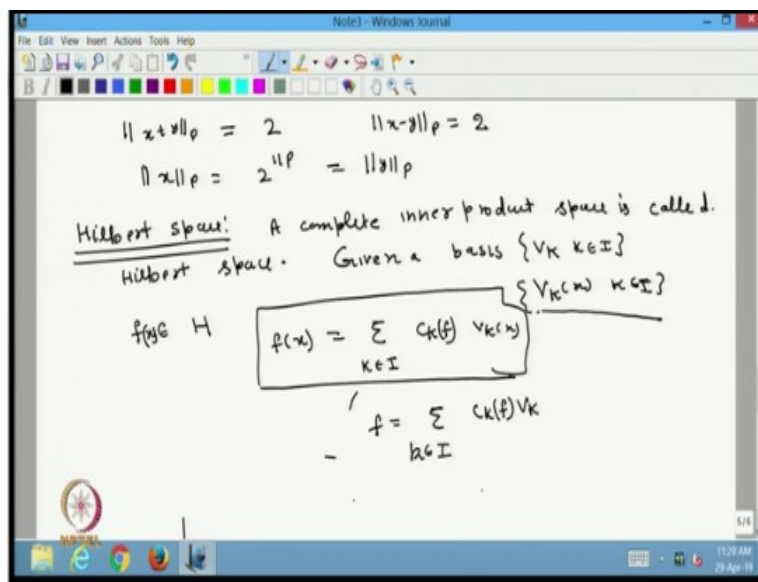 Note3 - Windows Journal
File Edit View Insert Actions Tools Help
||x+y||p = 2 ||x-y||p = 2
||x||p = 2^{1/p} = ||y||p
Hilbert space: A complete inner product space is called.
Hilbert space. Given a basis {V_K K∈I}
{V_K(x) K∈I}
f(x)∈ H f(x) = Σ_{K∈I} C_K(f) V_K(x)
f = Σ_{k∈I} C_K(f) V_K
NPTEL
5/6
11:28 AM
29-Apr-19